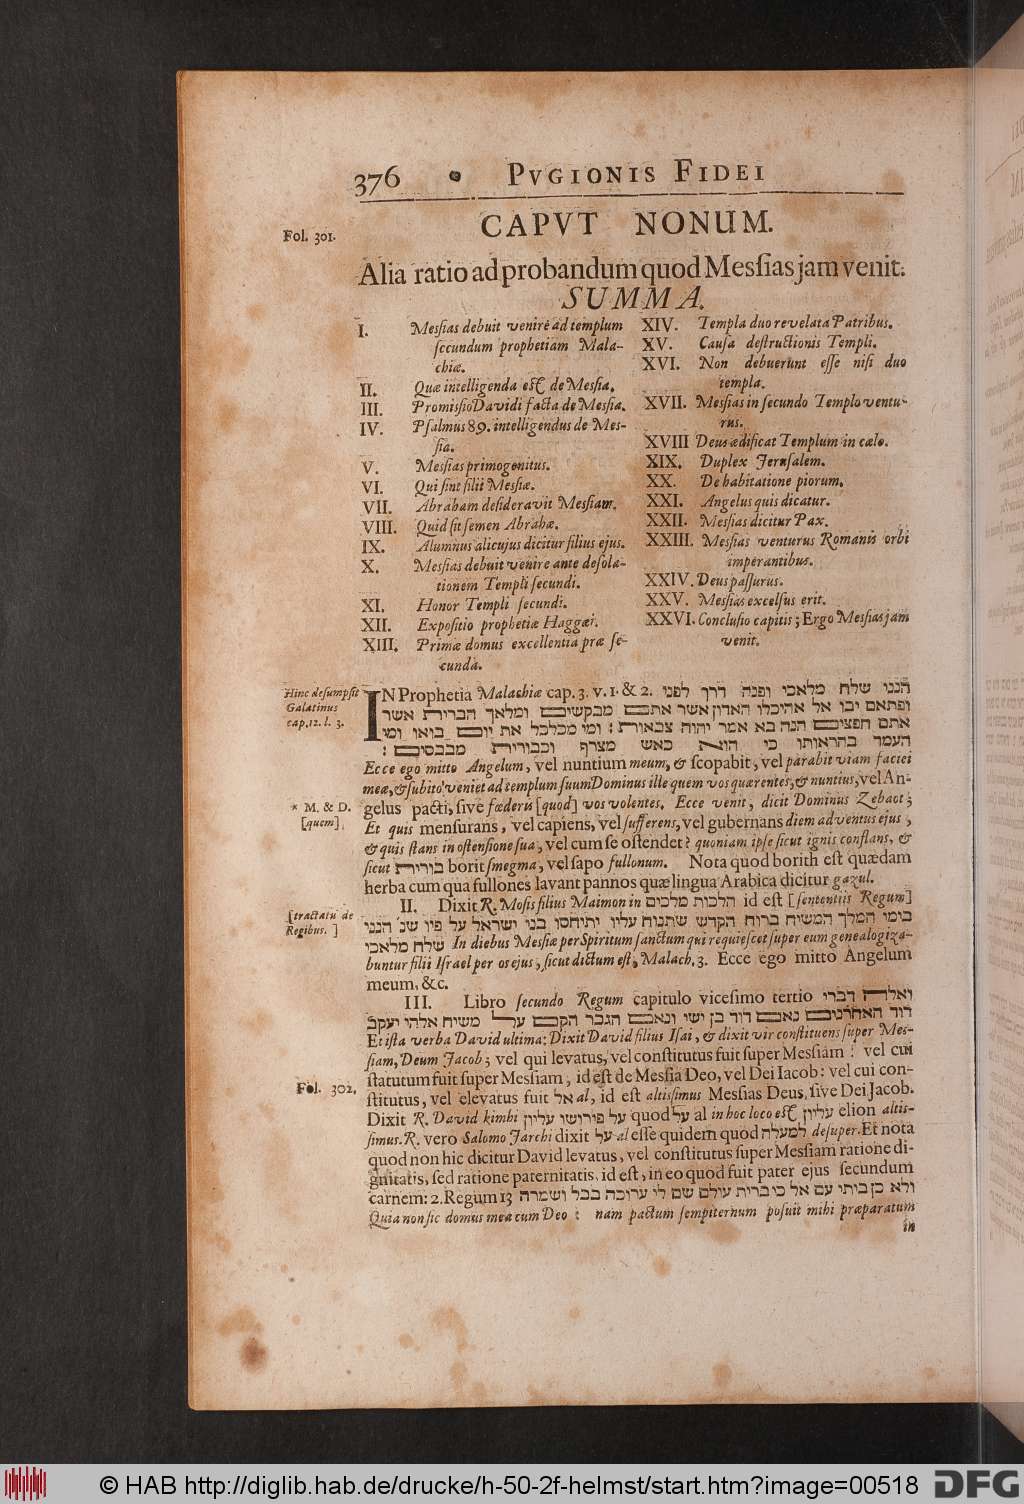 376 • PVGIONIS FIDEI
Fol. 301.
CAPVT NONUM.
Alia ratio ad probandum quod Messias jam venit.
SUMMA.
I. Messias debuit venire ad templum
secundum prophetiam Mala-
chiæ.
II. Quæ intelligenda est de Messia.
III. Promissio Davidi facta de Messia.
IV. Psalmus 89. intelligendus de Mes-
sia.
V. Messias primogenitus.
VI. Qui sint filii Messiæ.
VII. Abraham desideravit Messiam.
VIII. Quid sit semen Abrahæ.
IX. Alumnus alicujus dicitur filius ejus.
X. Messias debuit venire ante desola-
tionem Templi secundi.
XI. Honor Templi secundi.
XII. Expositio prophetiæ Haggæi.
XIII. Primæ domus excellentia præ se-
cunda.
XIV. Templa duo revelata Patribus.
XV. Causa destructionis Templi.
XVI. Non debuerunt esse nisi duo
templa.
XVII. Messias in secundo Templo ventu-
rus.
XVIII Deus ædificat Templum in cœlo.
XIX. Duplex Jerusalem.
XX. De habitatione piorum.
XXI. Angelus quis dicatur.
XXII. Messias dicitur Pax.
XXIII. Messias venturus Romanis orbi
imperantibus.
XXIV. Deus passurus.
XXV. Messias excelsus erit.
XXVI. Conclusio capitis; Ergo Messias jam
venit.
Hinc desumpsit
Galatinus
cap. 12. l. 3.
IN Prophetia Malachiæ cap. 3. v. 1. & 2. הנני שלח מלאכי ופנה דרך לפני
ופתאם יבו אל אהיכלו האדון אשר אתם מבקשים ומלאך הברית אשר
אתם חפצים הנה בא אמר יהוה צבאות: ומי מכלכל את יום בואו ומי
העמד בהראותו כי הוא כאש מצרף וכבורית מבבסים:
Ecce ego mitto Angelum, vel nuntium meum, & scopabit, vel parabit viam faciei
meæ, & subito veniet ad templum suum Dominus ille quem vos quærentes, & nuntius, vel An-
* M. & D.
[quem]
gelus pacti, sive fœderis [quod] vos volentes. Ecce venit, dicit Dominus Zebaot;
Et quis mensurans, vel capiens, vel sufferens, vel gubernans diem adventus ejus,
& quis stans in ostensione sua, vel cum se ostendet? quoniam ipse sicut ignis conflans, &
sicut בורית borit smegma, vel sapo fullonum. Nota quod borith est quædam
herba cum qua fullones lavant pannos quæ lingua Arabica dicitur gazul.
[tractatu de
Regibus.]
II. Dixit R. Mosis filius Maimon in הלכות מלכים id est [sententiis Regum]
בומי המלך המשיח ברוח הקדש שתנוח עליו יתיחסו בני ישראל על פיו שנ הנני
שלח מלאכי In diebus Messiæ per Spiritum sanctum qui requiescet super eum genealogiza-
buntur filii Israel per os ejus, sicut dictum est, Malach. 3. Ecce ego mitto Angelum
meum, &c.
III. Libro secundo Regum capitulo vicesimo tertio ואלה דברי
דוד האחרנים נאם דוד בן ישי ונאם הגבר הקם על משיח אלהי יעקב
Et ista verba David ultima: Dixit David filius Isai, & dixit vir constituens super Mes-
siam, Deum Jacob; vel qui levatus, vel constitutus fuit super Messiam: vel cui
Fol. 302.
statutum fuit super Messiam, id est de Messia Deo, vel Dei Iacob: vel cui con-
stitutus, vel elevatus fuit אל al, id est altissimus Messias Deus, sive Dei Jacob.
Dixit R. David kimhi על פירושו עליון quod על al in hoc loco est עליון elion altis-
simus. R. vero Salomo Jarchi dixit על al esse quidem quod למעלה desuper. Et nota
quod non hic dicitur David levatus, vel constitutus super Messiam ratione di-
gnitatis, sed ratione paternitatis, id est, in eo quod fuit pater ejus secundum
carnem: 2. Regum 13 ולא כן ביתי עם אל כי ברית עולם שם לי ערוכה בכל ושמרה
Quia non sic domus mea cum Deo: nam pactum sempiternum posuit mihi præparatum
in
© HAB http://diglib.hab.de/drucke/h-50-2f-helmst/start.htm?image=00518 DFG